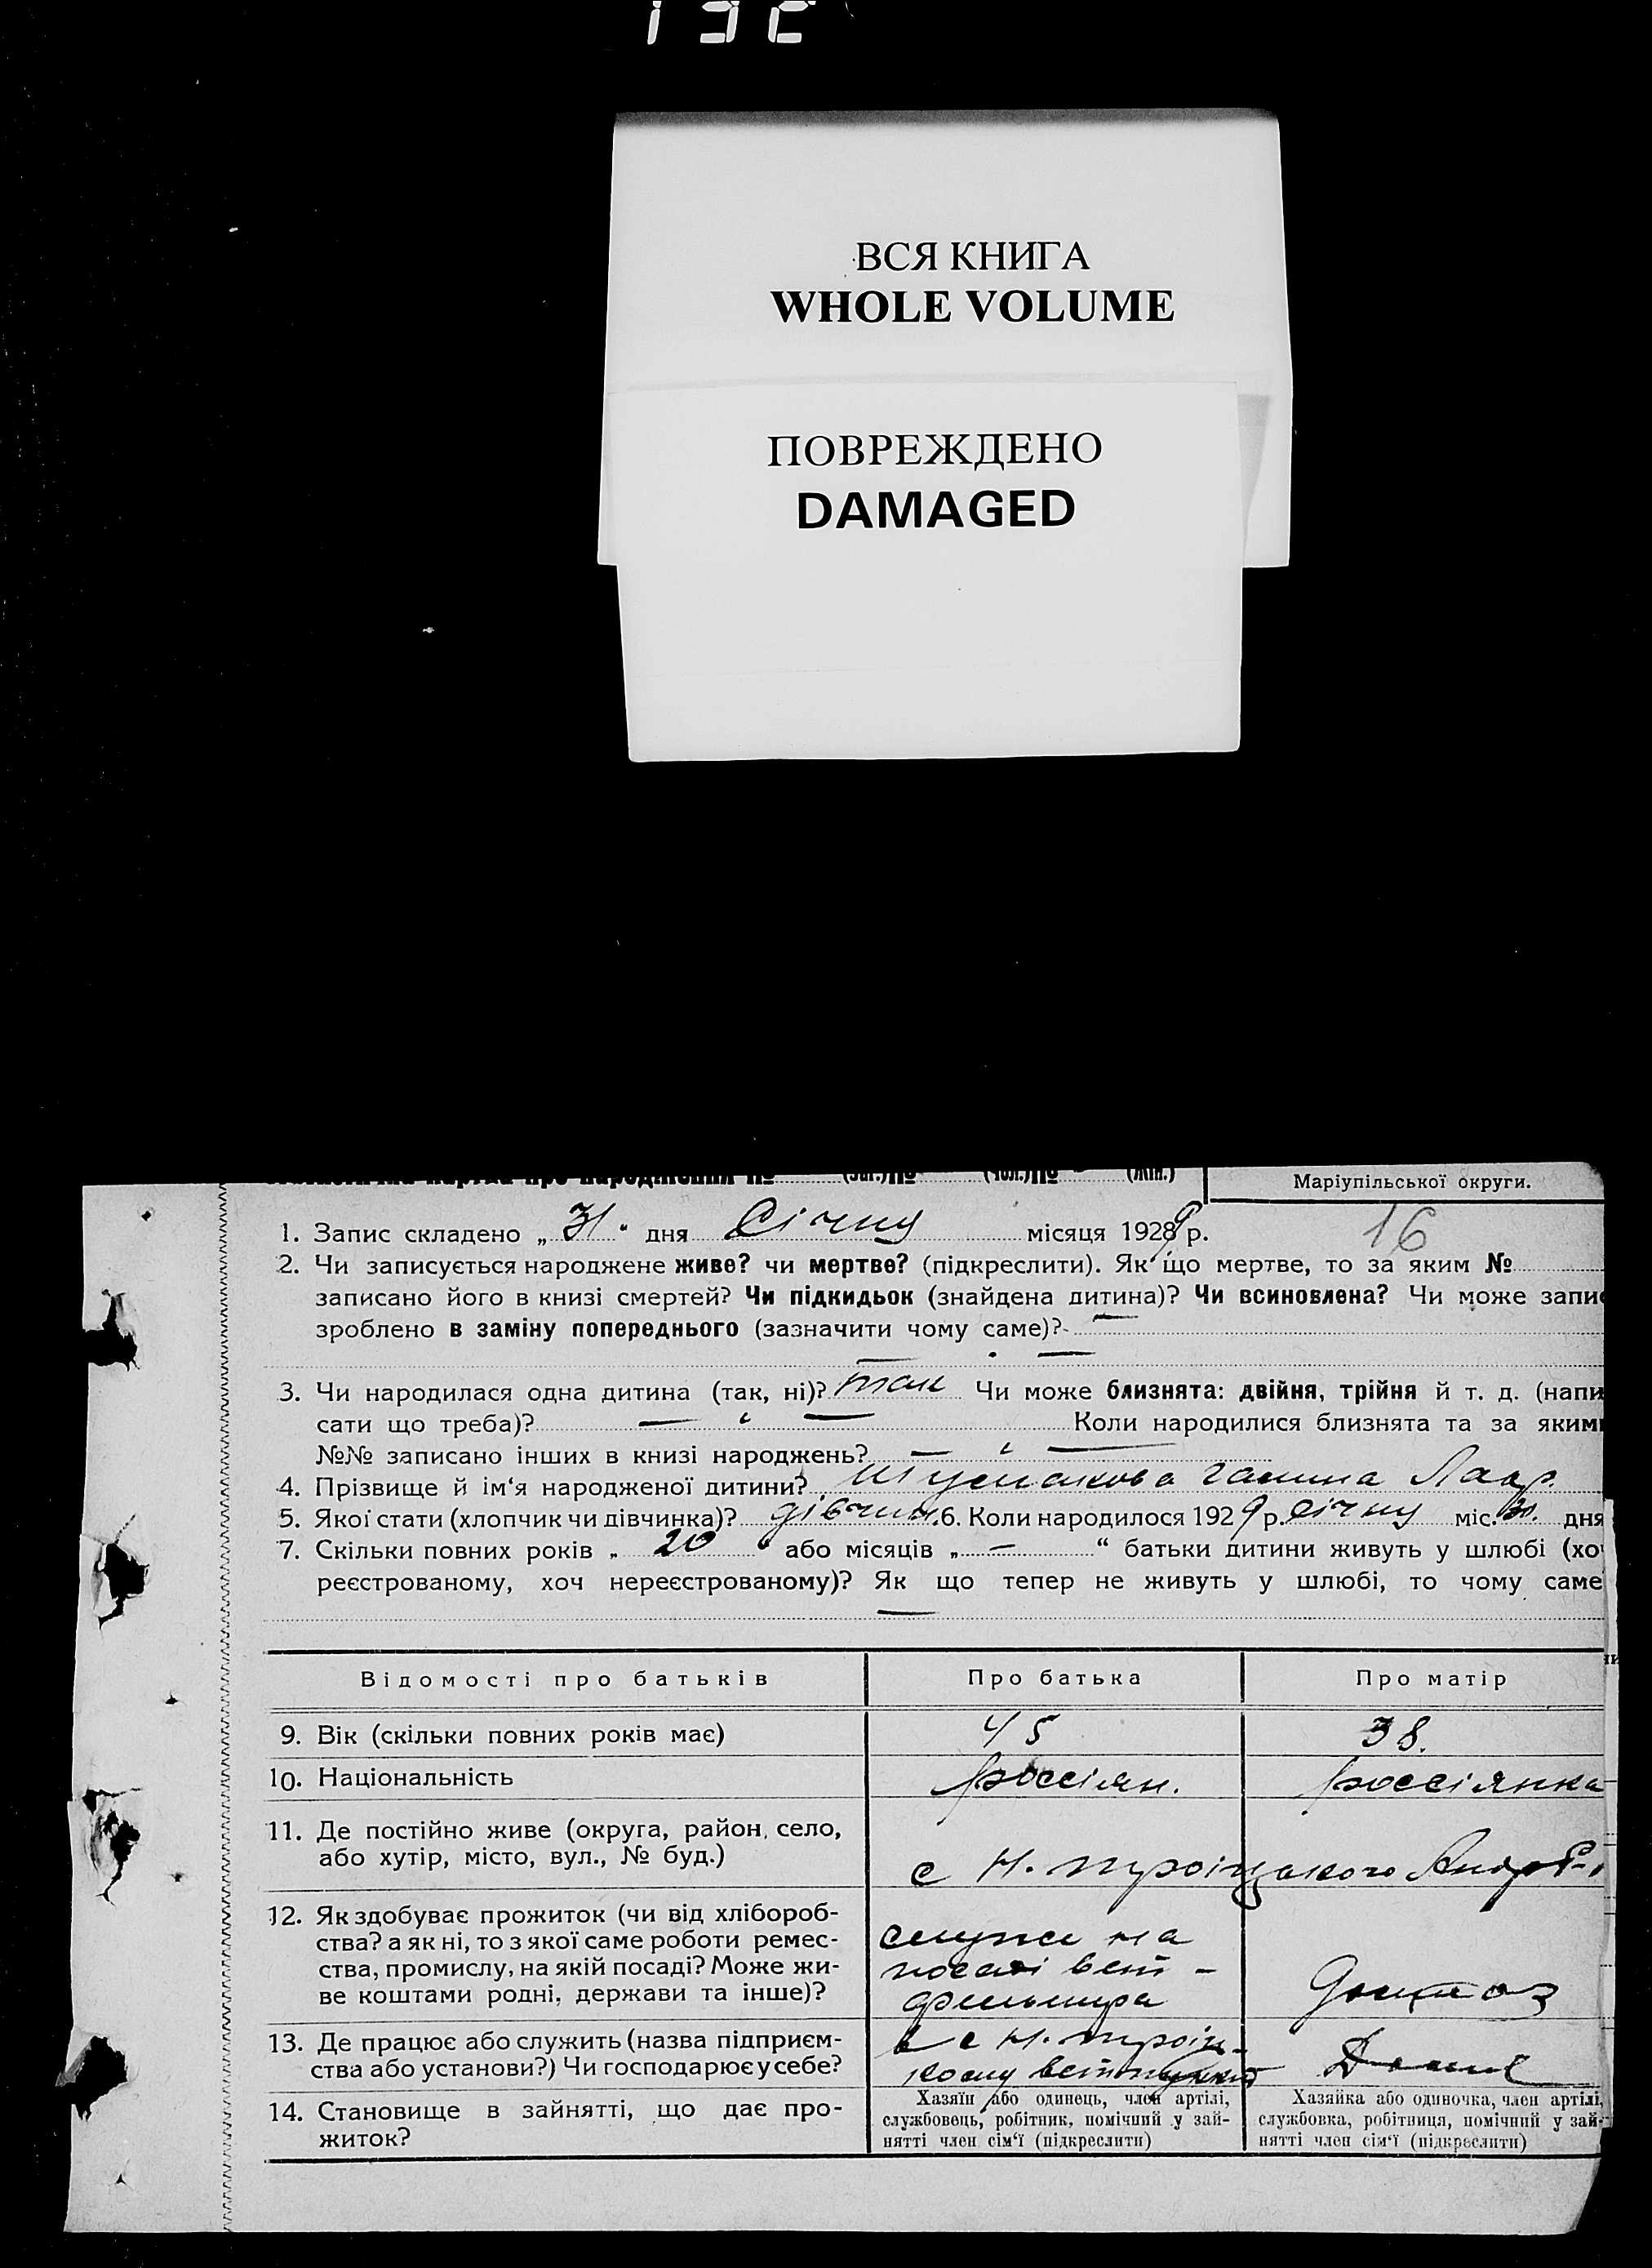 132
ВСЯ КНИГА
WHOLE VOLUME
ПОВРЕЖДЕНО
DAMAGED
Маріупільської округи.
16
1. Запис складено „ 31 “ дня Січня місяця 1929 р.
2. Чи записується народжене живе? чи мертве? (підкреслити). Як що мертве, то за яким №
записано його в книзі смертей? Чи підкидьок (знайдена дитина)? Чи всиновлена? Чи може запис
зроблено в заміну попереднього (зазначити чому саме)? —
— " —
3. Чи народилася одна дитина (так, ні)? так Чи може близнята: двійня, трійня й т. д. (напи
сати що треба)? — " — Коли народилися близнята та за якими
№№ записано інших в книзі народжень? — " —
4. Прізвище й ім‘я народженої дитини? Галина Лавр.
5. Якої стати (хлопчик чи дівчинка)? дівчин. 6. Коли народилося 1929 р. січну міс. 30. дня
7. Скільки повних років „ 20 “ або місяців „ — “ батьки дитини живуть у шлюбі (хоч
реєстрованому, хоч нереєстрованому)? Як що тепер не живуть у шлюбі, то чому саме
—
Відомості про батьків Про батька Про матір
9. Вік (скільки повних років має) 45 38.
10. Національність россіян. россіянка
11. Де постійно живе (округа, район, село,
або хутір, місто, вул., № буд.) с Н. троіцького
12. Як здобуває прожиток (чи від хлібороб-
ства? а як ні, то з якої саме роботи ремес-
ства, промислу, на якій посаді? Може жи-
ве коштами родні, держави та інше)?
на
посаді вет-
фельшера
13. Де працює або служить (назва підприєм-
ства або установи?) Чи господарює у себе?
в с Н. троіц-
кому ветпункті
14. Становище в зайнятті, що дає про-
житок?
Хазяїн або одинець, член артілі,
службовець, робітник, помічний у зай-
нятті член сім‘ї (підкреслити)
Хазяйка або одиночка, член артілі,
службовка, робітниця, помічний у зай-
нятті член сім‘ї (підкреслити)